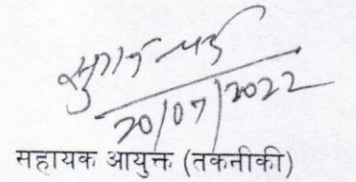 20/07/2022
सहायक आयुक्त (तकनीकी)